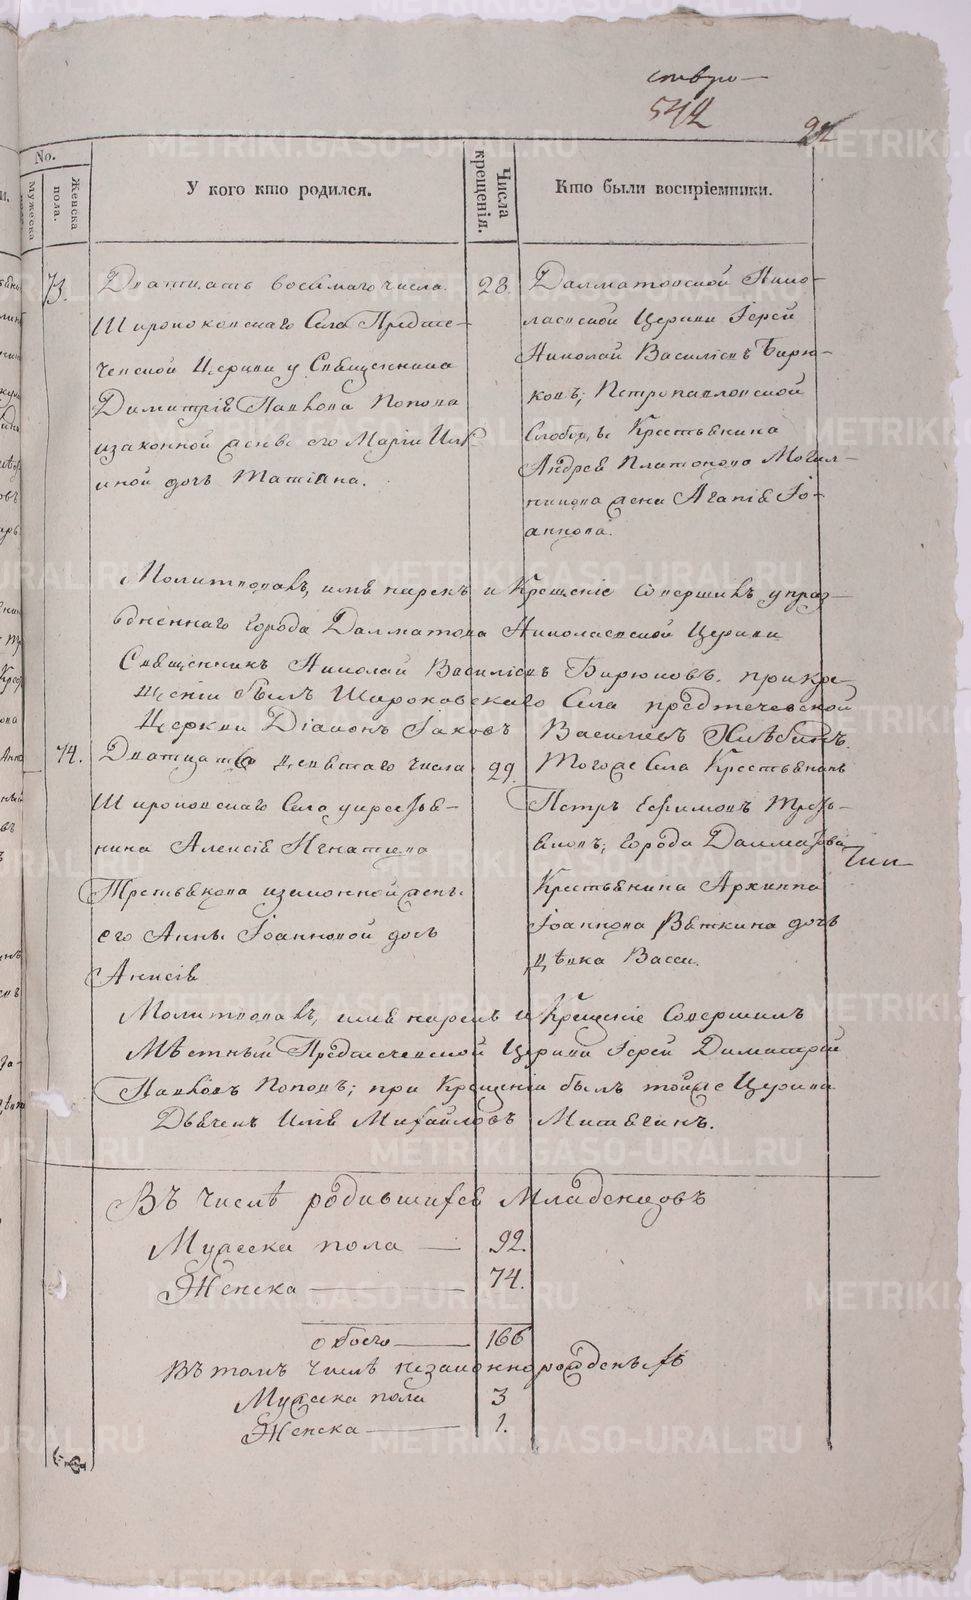 542
No.
Мужеска
Женска пола.
У кого кто родился.
Числа крещенія.
Кто были воспріемники.
73.
Дватцать восьмаго числа
Широковскаго Села Предте-
ченской Церкви у Священника
Димитрія Павлова Попова
изаконной жены его Маріи
иной дочь Татіана.
28.
Далматовской Нико-
лаевской Церкви Іерей
Николай Василіевъ Бирю-
ковъ; Петропавловской
Слободы Крестьянина
Андрея Платонова Могил-
никова жена Агапія Іо-
аннова.
Молитвовавъ, имя нарекъ и Крещеніе Совершилъ упраз-
дненнаго города Далматова Николаевской Церкви
Священникъ Николай Василіевъ Бирюковъ. прикре-
щеніи былъ Широковскаго Села предтеченской
Церкви Діаконъ Іаковъ Василіевъ Хлѣбинъ.
74.
Дватцать девятаго числа
Широковскаго Села укрестья-
нина Алексія Игнатіева
Третьякова изаконной жены
его Анны Іоанновой дочь
Анисія
29.
Тогоже Села Крестьянинъ
Петръ Ефимовъ Треть-
яковъ; города Далматова
Крестьянина Архиппа
Іоаннова Вяткина дочь
дѣвка Васса.
Молитвовавъ, имя нарекъ и Крещеніе Совершилъ
Мѣстный Предтеченской Церкви Іерей Димитрій
Павловъ Поповъ; при Крещеніи былъ тойже Церкви
Дьячекъ Илія Михайловъ
Въ числѣ родившихся Младенцовъ
Мужеска пола — 92.
Женска — 74.
обоего — 166
Въ томъ числѣ незаконнорожденныхъ
Мужеска пола 3
Женска — 1.
METRIKI.GASO-URAL.RU